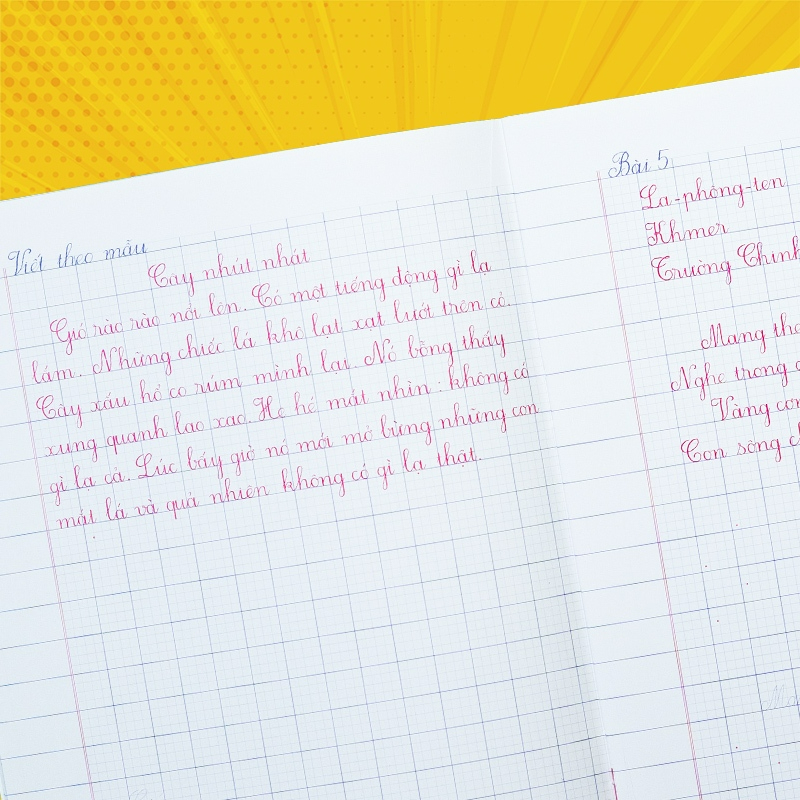 Viết theo mẫu
Cây nhút nhát
Gió rào rào nổi lên. Có một tiếng động gì lạ
lắm. Những chiếc lá khô lạt xạt lướt trên cỏ.
Cây xấu hổ co rúm mình lại. Nó bỗng thấy
xung quanh lao xao. He hé mắt nhìn: không có
gì lạ cả. Lúc bấy giờ nó mới mở bừng những con
mắt lá và quả nhiên không có gì lạ thật.
Bài 5
La-phông-ten
Khmer
Trường Chinh
Mang the
Nghe trong
Vàng con
Con sông